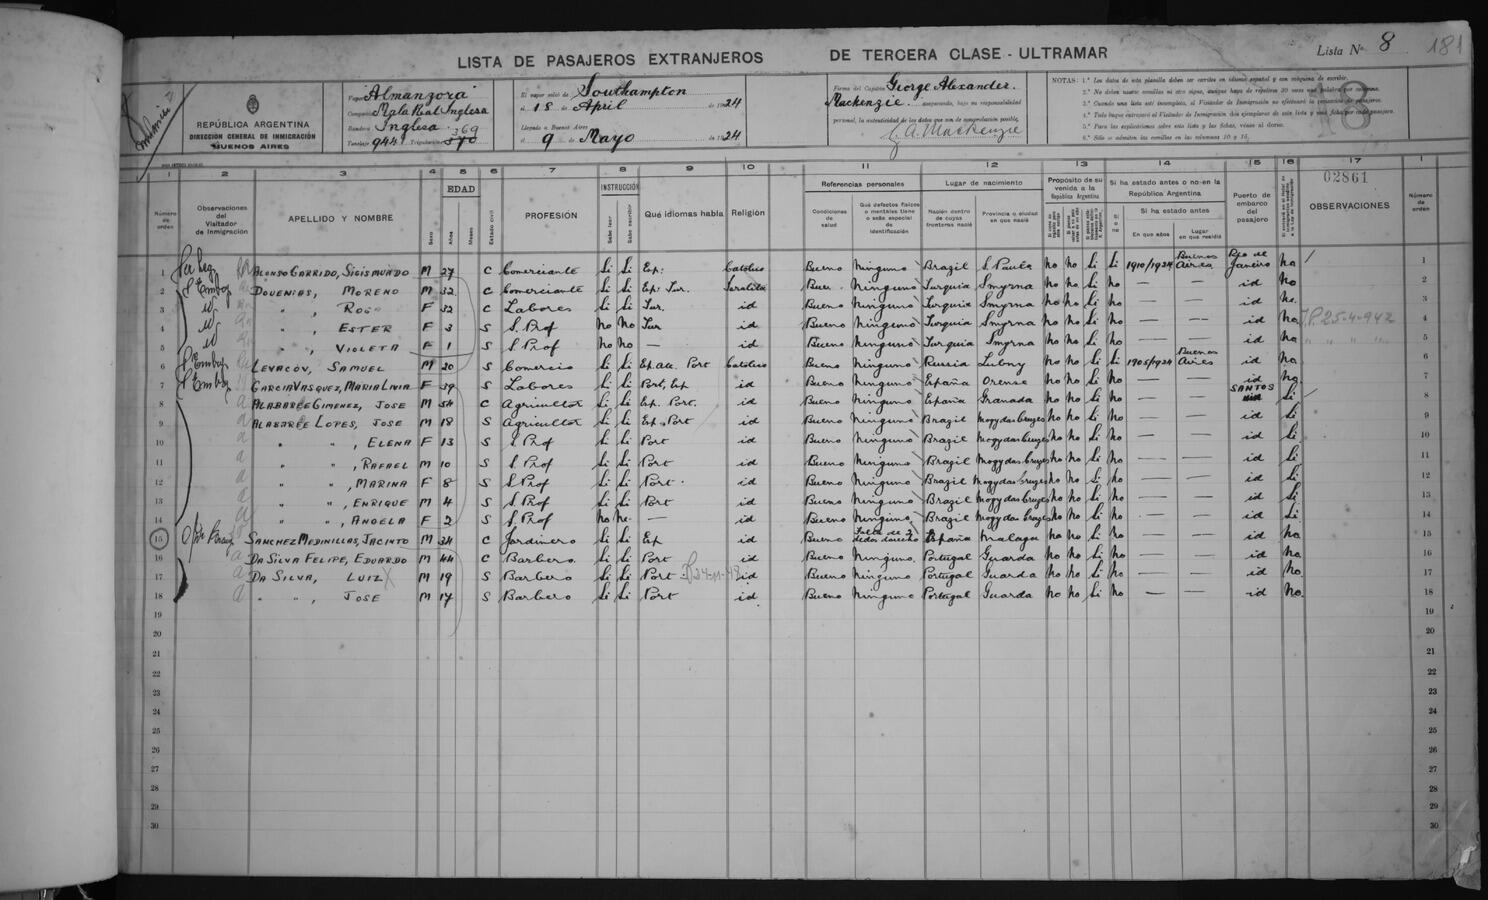 LISTA DE PASAJEROS EXTRANJEROS DE TERCERA CLASE - ULTRAMAR
Lista Nº 8 181
REPÚBLICA ARGENTINA
DIRECCIÓN GENERAL DE INMIGRACIÓN
BUENOS AIRES
Vapor Almanzora
Compañía Mala Real Inglesa
Bandera Inglesa
Tonelaje 944 Tripulación 370 369
El vapor salió de Southampton
el 18 de April de 1924
Llegado a Buenos Aires
el 9 de Mayo de 1924
Firma del Capitán George Alexander
Mackenzie asegurando, bajo su responsabilidad
personal, la autenticidad de los datos que son de comprobación posible.
G. A. Mackenzie
NOTAS: 1.ª Los datos de esta planilla deben ser escritos en idioma español y con máquina de escribir.
18
02861
1 2 3 4 5 6 7 8 9 10 11 12 13 14 15 16 17 1
Número de orden
Observaciones del Visitador de Inmigración
APELLIDO Y NOMBRE
Sexo
EDAD
Años
Meses
Estado civil
PROFESIÓN
INSTRUCCIÓN
Sabe leer
Sabe escribir
Qué idiomas habla
Religión
Referencias personales
Condiciones de salud
Qué defectos físicos o mentales tiene o señas especial de identificación
Lugar de nacimiento
Nación dentro de cuyas fronteras nació
Provincia o ciudad en que nació
Propósito de su venida a la República Argentina
Si ha estado antes o no en la República Argentina
Si o no
Si ha estado antes
En que años
Lugar en que residía
Puerto de embarco del pasajero
OBSERVACIONES
Número de orden
1 ALONSO GARRIDO, SIGISMUNDO M 27 C Comerciante Si Si Esp: Catolico Bueno Ninguno Brazil S. Paulo No No Si Si 1910/1924 Buenos Aires Rio de Janeiro No 1
2 DOUENIAS, MORENO M 32 C Comerciante Si Si Esp. Tur. Israelita Buen. Ninguno Turquia Smyrna No No Si No — — id No 2
3 " ", ROSA F 32 C Labores Si Si Tur. id Bueno Ninguno Turquia Smyrna No No Si No — — id No. 3
4 " ", ESTER F 3 S S. Prof No No Tur id Bueno Ninguno Turquia Smyrna No No Si No — — id No I.P. 25-4-942 4
5 " ", VIOLETA F 1 S S. Prof No No — id Bueno Ninguno Turquia Smyrna No No Si No — — id No " " " " 5
6 LEVACOV, SAMUEL M 20 S Comercio Si Si Catolico Bueno Ninguno Russia Lubny No No Si Si 1905/1924 Buenos Aires id No 6
7 GARCIA VASQUEZ, MARIA LIVIA F 39 S Labores Si Si Port, Esp id Bueno Ninguno España Orense No No Si No — — id No. 7
8 ALABARCE GIMENEZ, JOSE M 54 C Agricultor Si Si Esp. Port. id Bueno Ninguno España Granada No No Si No — — SANTOS Si 8
9 ALABARCE LOPES, JOSE M 18 S Agricultor Si Si Esp. Port id Bueno Ninguno Brazil Mogy das Cruzes No No Si No — — id Si 9
10 " ", ELENA F 13 S S. Prof Si Si Port id Bueno Ninguno Brazil Mogy das Cruzes No No Si No — — id Si 10
11 " ", RAFAEL M 10 S S. Prof Si Si Port id Bueno Ninguno Brazil Mogy das Cruzes No No Si No — — id Si 11
12 " ", MARINA F 8 S S. Prof Si Si Port. id Bueno Ninguno Brazil Mogy das Cruzes No No Si No — — id Si 12
13 " ", ENRIQUE M 4 S S. Prof Si Si Port id Bueno Ninguno Brazil Mogy das Cruzes No No Si No — — id Si 13
14 " ", ANGELA F 2 S S. Prof No No. — id Bueno Ninguno Brazil Mogy das Cruzes No No Si No — — id Si 14
15 SANCHEZ MEDINILLAS, JACINTO M 34 C Jardinero Si Si Esp id Bueno Falta de 2 dedos derecho España Malaga No No Si No — — id No 15
16 DA SILVA FELIPE, EDUARDO M 44 C Barbero. Si Si Port id Bueno Ninguno. Portugal Guarda No No Si No — — id No 16
17 DA SILVA, LUIZ M 19 S Barbero Si Si Port 24-11-48 id Bueno Ninguno Portugal Guarda No No Si No — — id No 17
18 " ", JOSE M 17 S Barbero Si Si Port id Bueno Ninguno Portugal Guarda No No Si No — — id No. 18
19 19
20 20
21 21
22 22
23 23
24 24
25 25
26 26
27 27
28 28
29 29
30 30